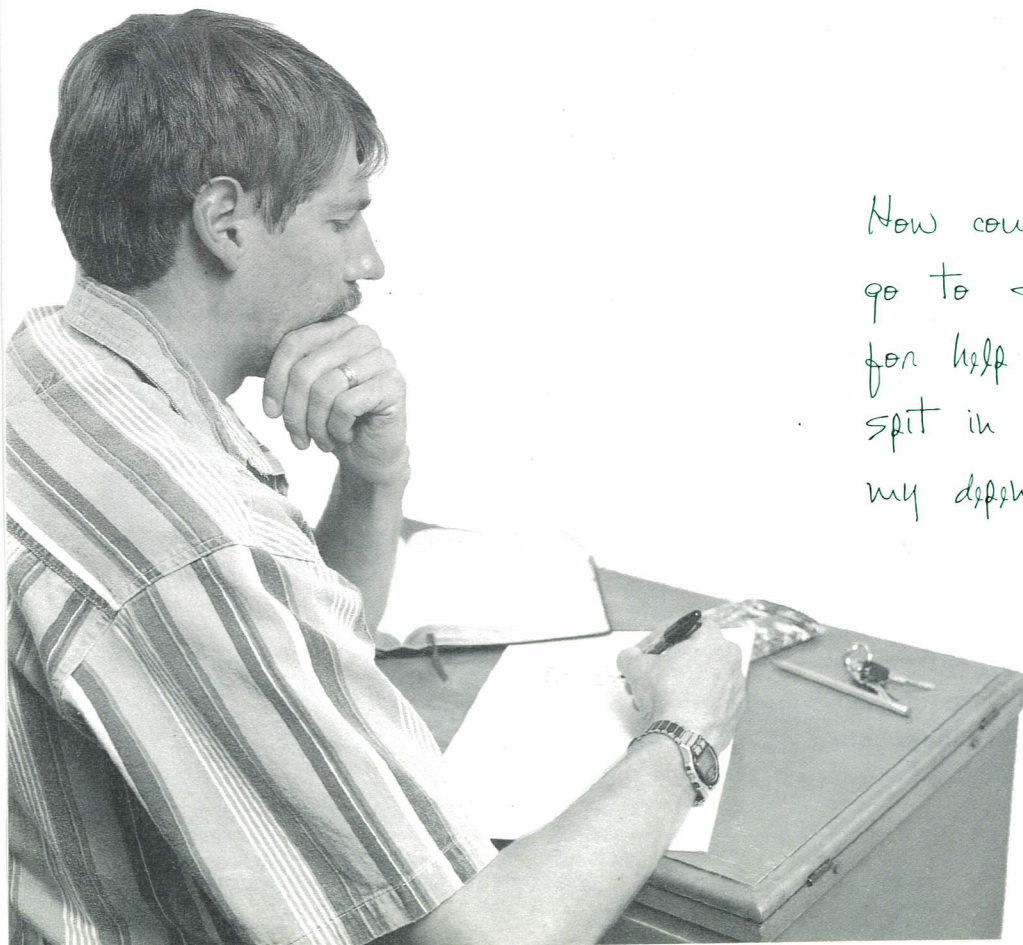 How cou
go to
for help
spit in
my depen